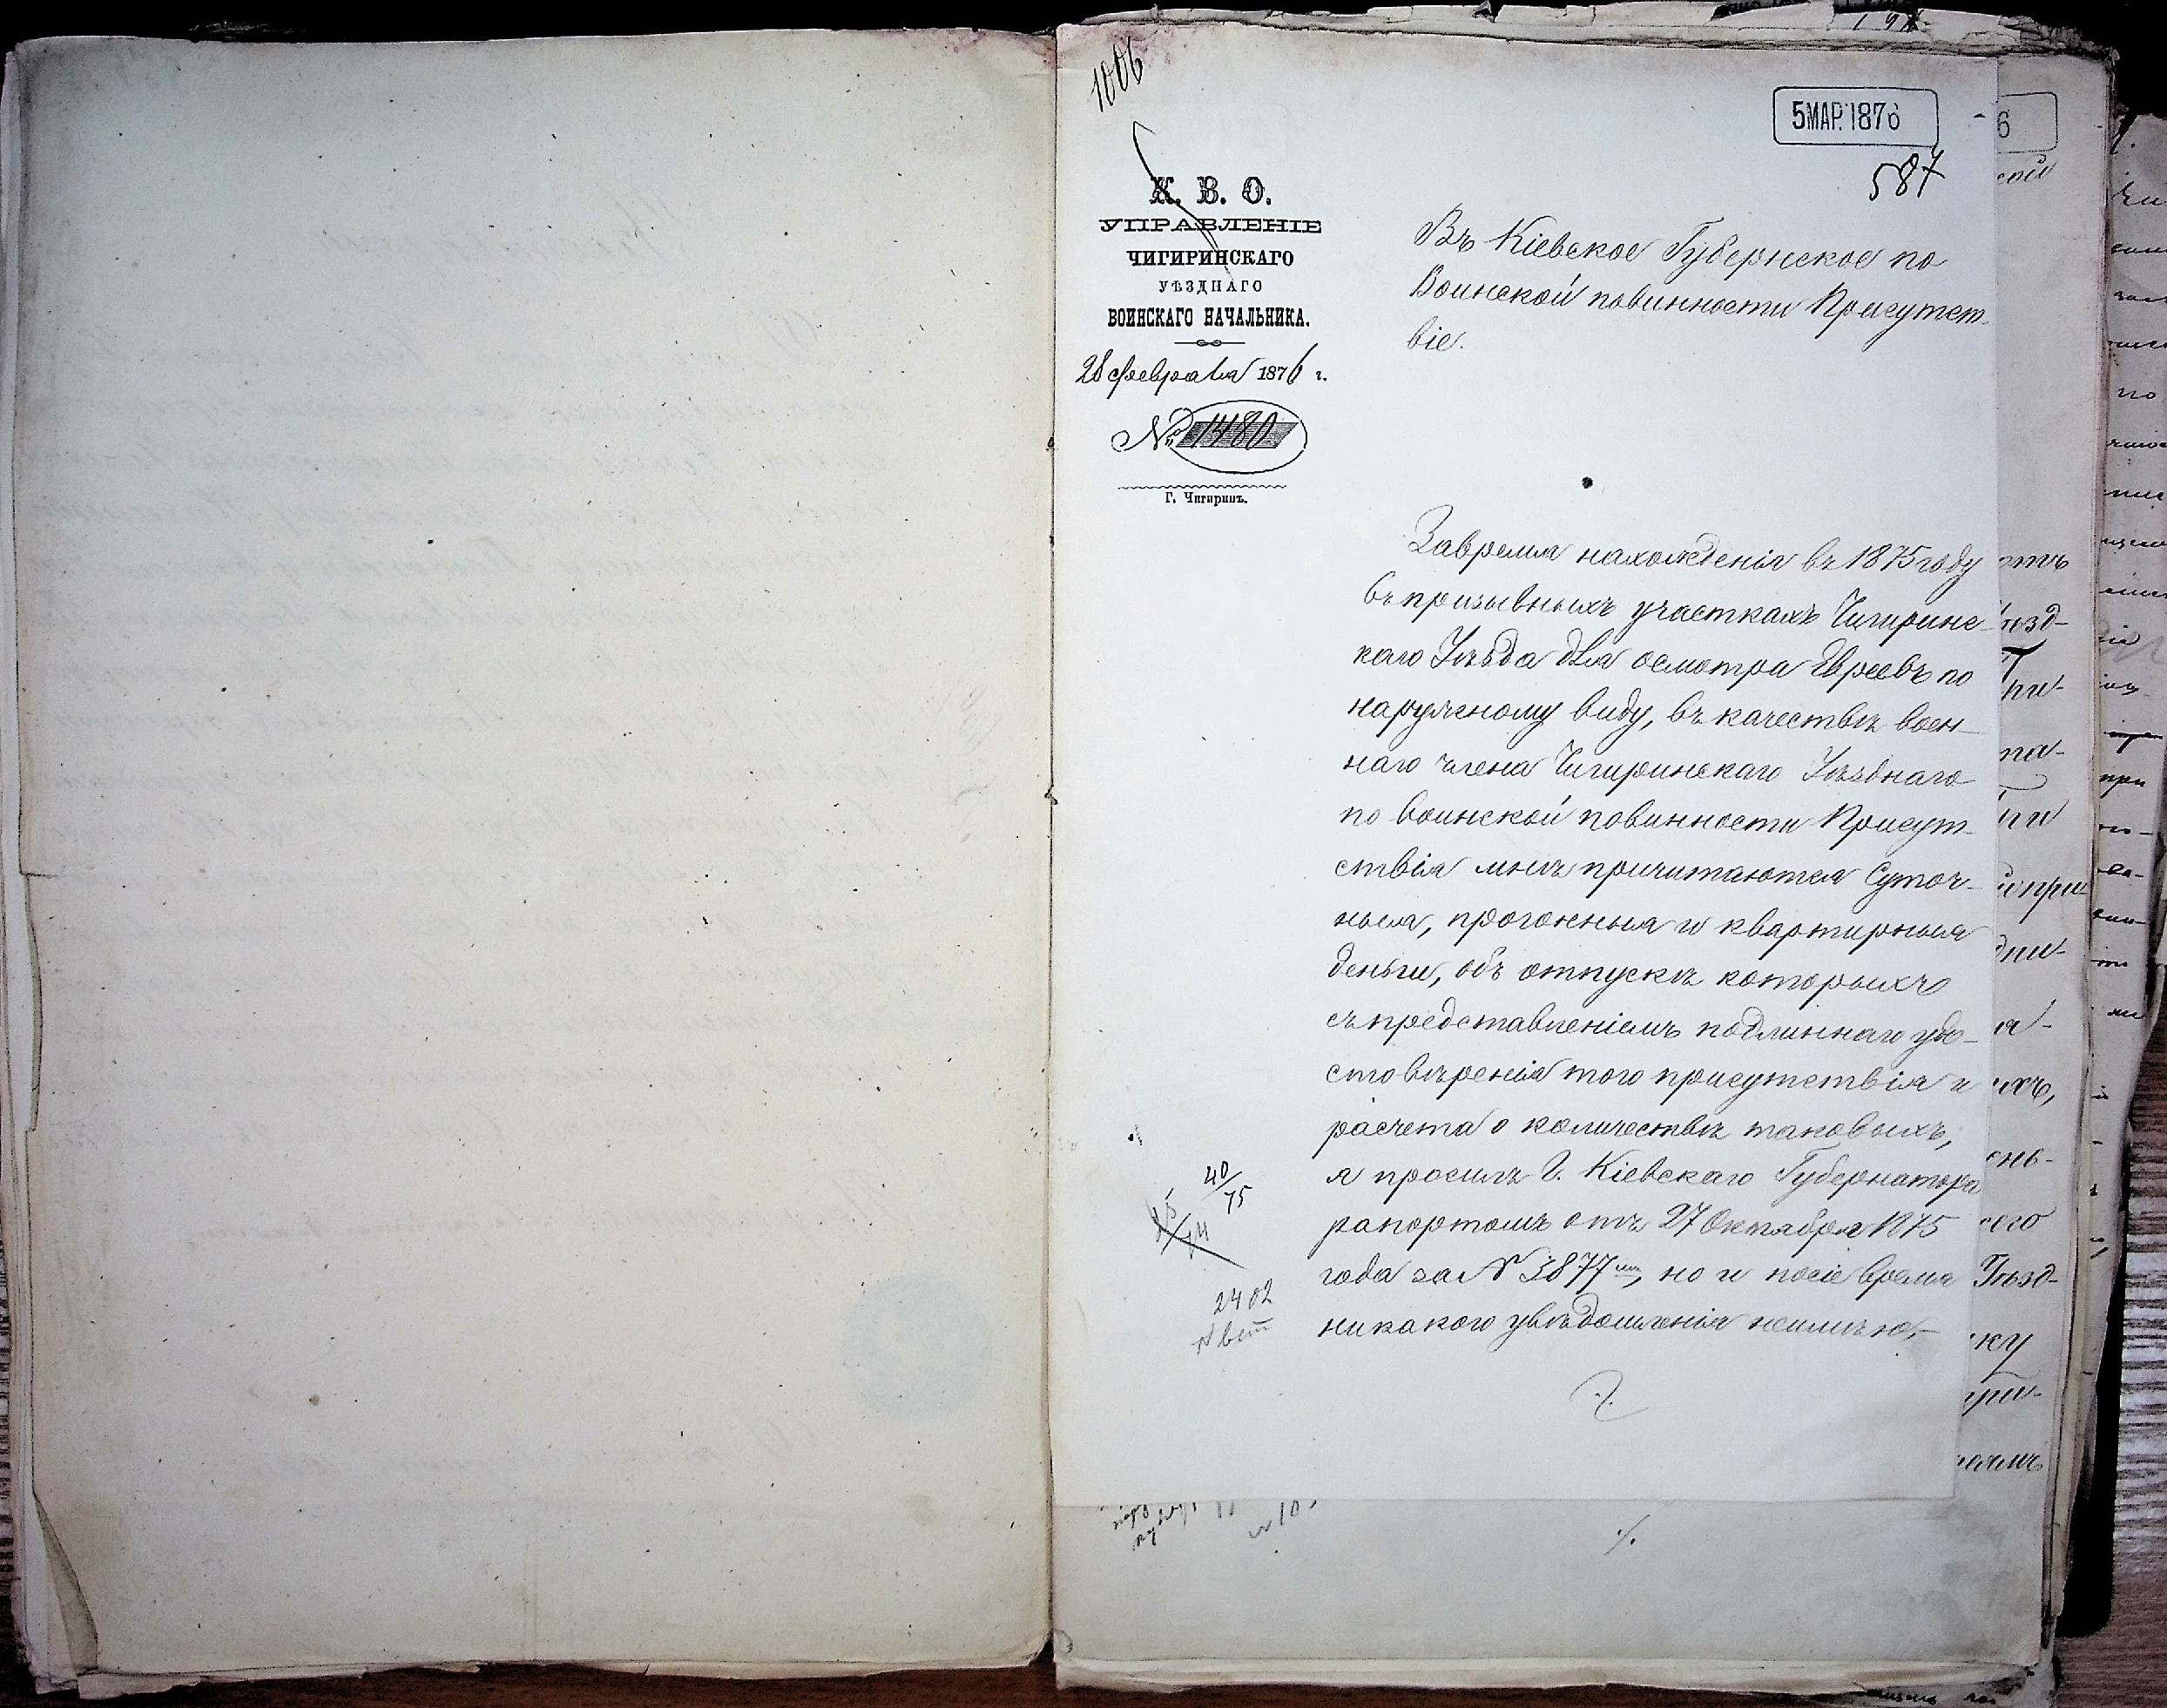 1006
5 МАР. 1876
587
К. В. О.
УПРАВЛЕНІЕ
ЧИГИРИНСКАГО
УѢЗДНАГО
ВОИНСКАГО НАЧАЛЬНИКА.
28 февраля 1876 г.
№ 1480
Г. Чигиринъ.
Въ Кіевское Губернское по
Воинской повинности Присутст-
віе.
Завремя нахожденія въ 1875 году
въ призывныхъ участкахъ Чигиринс-
каго Уѣзда для осмотра Евреевъ по
наружному виду, въ качествѣ воен-
наго члена Чигиринскаго Уѣзднаго
по воинской повинности Присут-
ствія мнѣ причитаются Суточ-
ныя, прогонныя и квартирныя
деньги, объ отпускѣ которыхъ
съ представленіемъ подлиннаго удо-
стовѣренія того присутствія и
расчета о количествѣ таковыхъ,
я просилъ Г. Кіевскаго Губернатора
рапортомъ отъ 27 Октября 1875
года за № 3877мъ, но и посіе время
никакого увѣдомленія неимѣю,-
40/75
2402